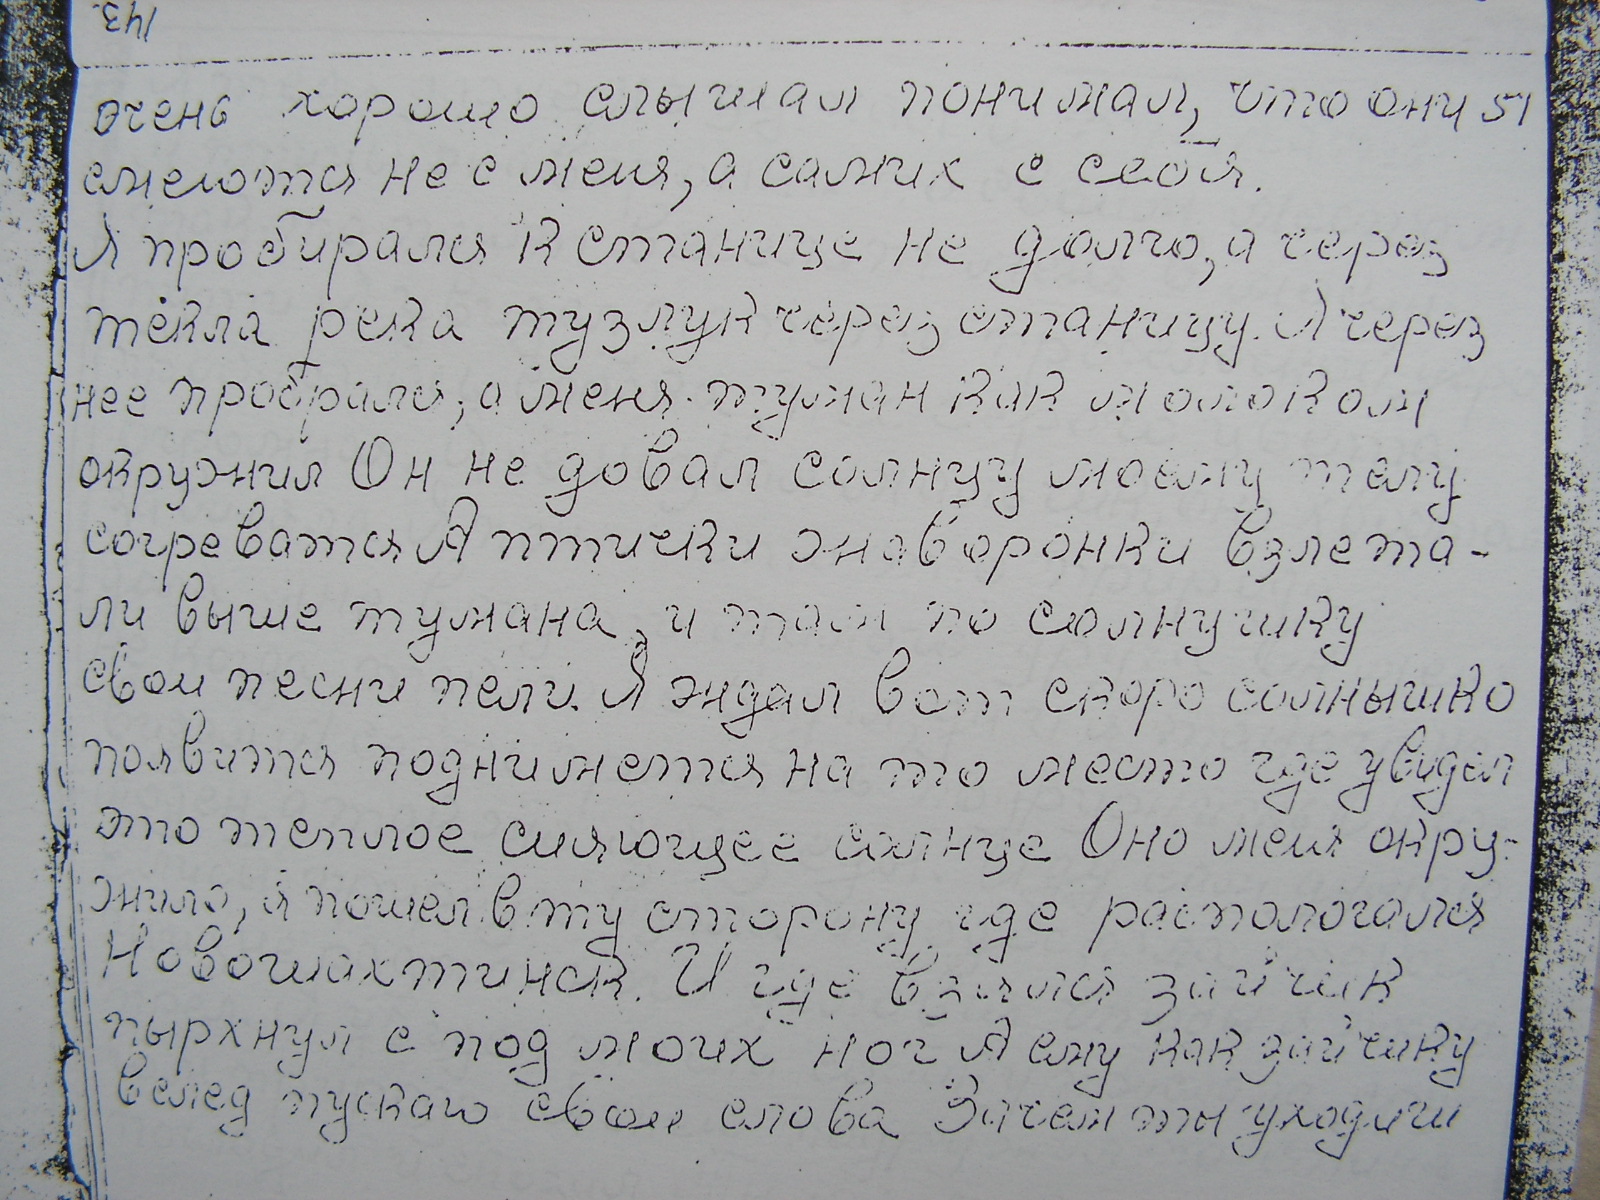 143.
очень хорошо слышал понимал, что они 51
смеются не с меня, а самих с себя.
Я пробирался к станице не долго, а через
текла река тузлук через станицу. Я через
нее пробрался, а меня туман как молоком
окружил Он не довал солнцу моему телу
согреватся А птички жаворонки взлета-
ли выше тумана, и там по солнушку
свои песни пели. Я ждал вот скоро солнышко
появится поднимется на то место где увидел
это теплое сияющее солнце Оно меня окру-
жило, я пошел в ту сторону где распологался
Новошахтинск. И где взялся зайчик
пырхнул с под моих ног Я ему как зайчику
вслед пускаю свои слова Зачем ты уходиш